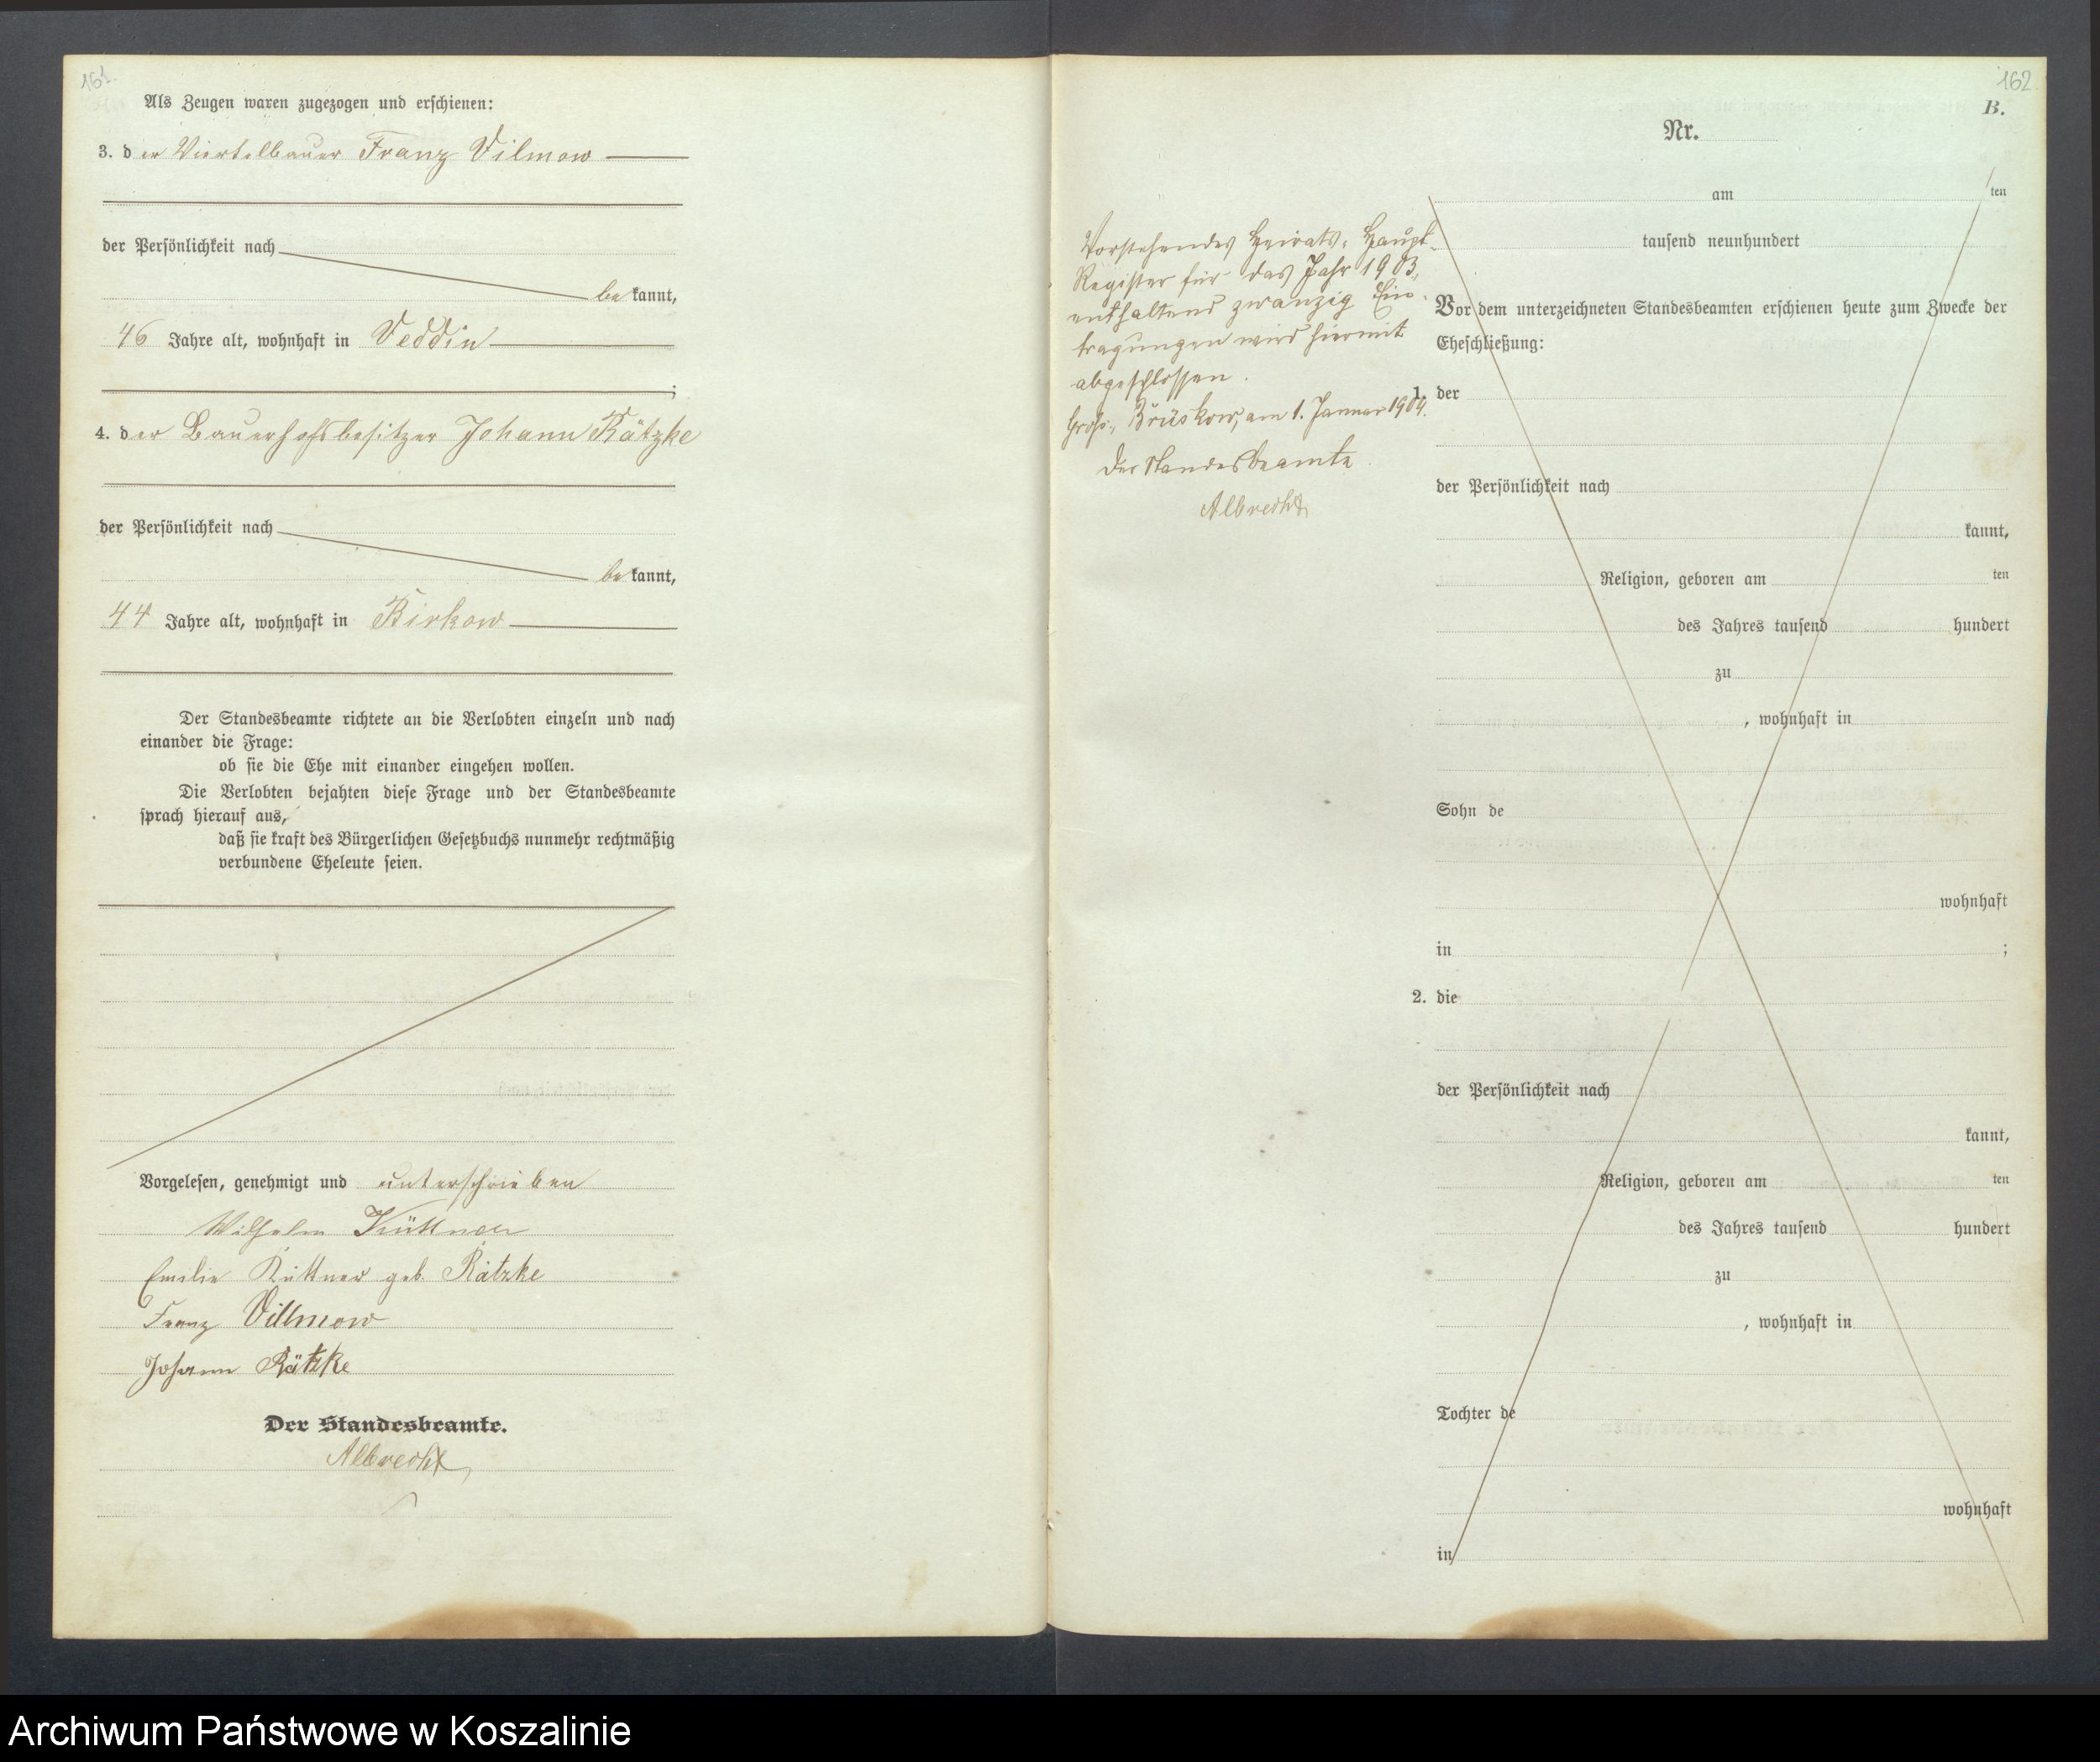 161.
Als Zeugen waren zugezogen und erschienen:
3. der Viertelbauer Franz Vilmow
der Persönlichkeit nach
bekannt,
46 Jahre alt, wohnhaft in Veddin
;
4. der Bauerhofsbesitzer Johann Rätzke
der Persönlichkeit nach
bekannt,
44 Jahre alt, wohnhaft in Birkow
Der Standesbeamte richtete an die Verlobten einzeln und nach
einander die Frage:
ob sie die Ehe mit einander eingehen wollen.
Die Verlobten bejahten diese Frage und der Standesbeamte
sprach hierauf aus,
daß sie kraft des Bürgerlichen Gesetzbuchs nunmehr rechtmäßig
verbundene Eheleute seien.
Vorgelesen, genehmigt und unterschrieben
Wilhelm Küttner
Emilie Küttner geb. Rätzke
Franz Villmow
Johann Rätzke
Der Standesbeamte.
Albrecht
162.
B.
Nr.
am ten
tausend neunhundert
Vorstehendes Heirats-Haupt-
Register für das Jahr 1903,
enthaltend zwanzig Ein-
tragungen wird hiermit
abgeschlossen.
Groß-Brüskow, am 1. Januar 1904.
Der Standesbeamte
Albrecht
Vor dem unterzeichneten Standesbeamten erschienen heute zum Zwecke der
Eheschließung:
1. der
der Persönlichkeit nach
kannt,
Religion, geboren am ten
des Jahres tausend hundert
zu
, wohnhaft in
Sohn de
wohnhaft
in ;
2. die
der Persönlichkeit nach
kannt,
Religion, geboren am ten
des Jahres tausend hundert
zu
, wohnhaft in
Tochter de
wohnhaft
in
Archiwum Państwowe w Koszalinie